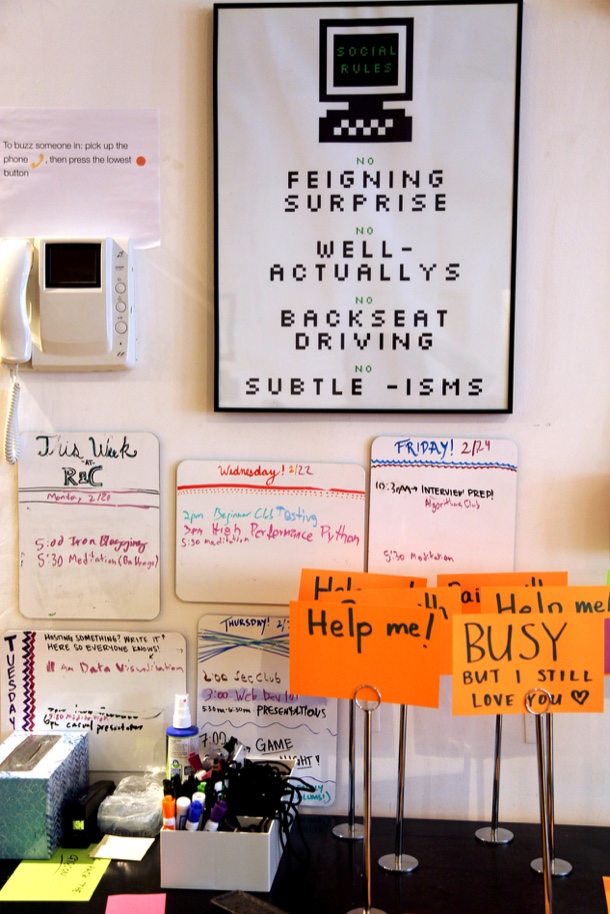 SOCIAL
RULES
NO
FEIGNING
SURPRISE
NO
WELL-
ACTUALLYS
NO
BACKSEAT
DRIVING
NO
SUBTLE -ISMS
To buzz someone in: pick up the
phone , then press the lowest
button
This Week
-AT-
R&C
Monday 2/20
5:00 Iron Blogging
5:30 Meditation
Wednesday! 2/22
2pm Beginner Club Testing
3pm High Performance Python
5:30 Meditation
FRIDAY! 2/24
INTERVIEW PREP!
Algorithms Club
5:30 Meditation
TUESDAY
HOSTING SOMETHING? WRITE IT!
HERE SO EVERYONE KNOWS!
11 am Data Visualization
5:30 Meditation
6pm casual presentations
THURSDAY!
2:00 Sec Club
3:00 Web Dev
PRESENTATIONS
7:00
GAME
Help me!
Help me!
BUSY
BUT I STILL
LOVE YOU ♡